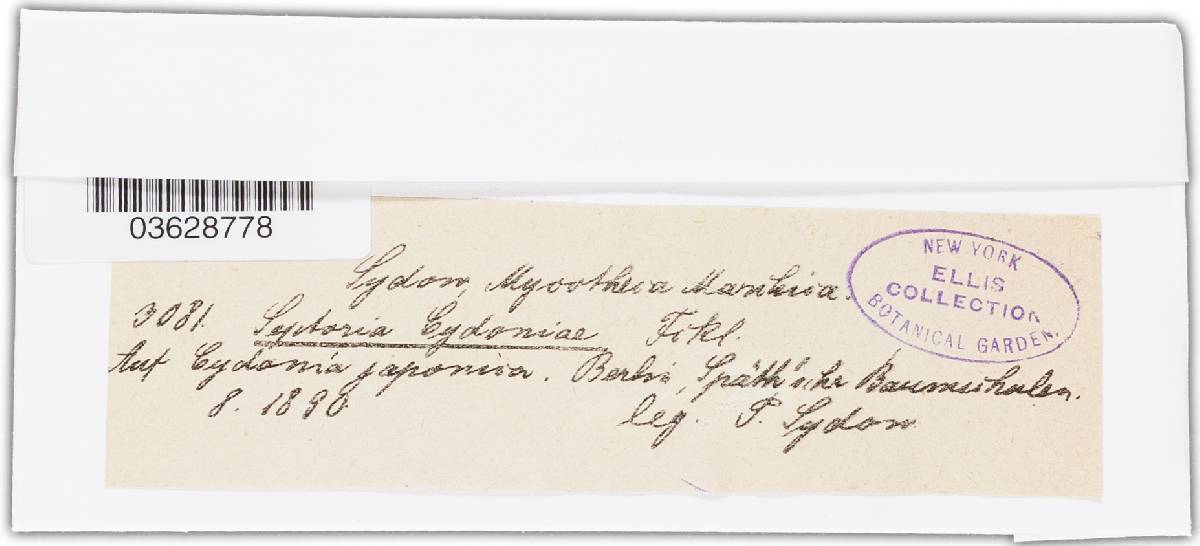 03628778
NEW YORK
ELLIS
COLLECTION
BOTANICAL GARDEN.
Sydow, Mycotheca Marchica.
3081. Septoria Cydoniae Fckl.
Auf Cydonia japonica. Berlin, Späth'sche Baumschulen.
8. 1890. leg. P. Sydow.